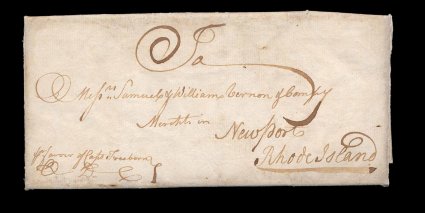 To
Messrs. Samuel & William Vernon & Compy
Merchts in
Newport
Rhode Island
pr favour of Capt Freeborn